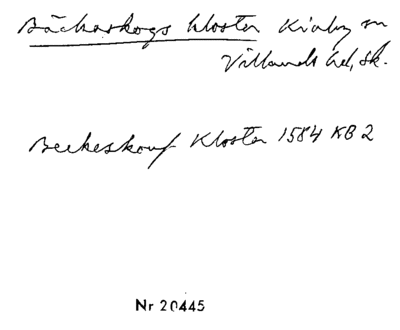 Bäckaskogs kloster Kiaby sn
Villands hd, Sk.
Beckeskouf Kloster 1584 KB 2
Nr 20445